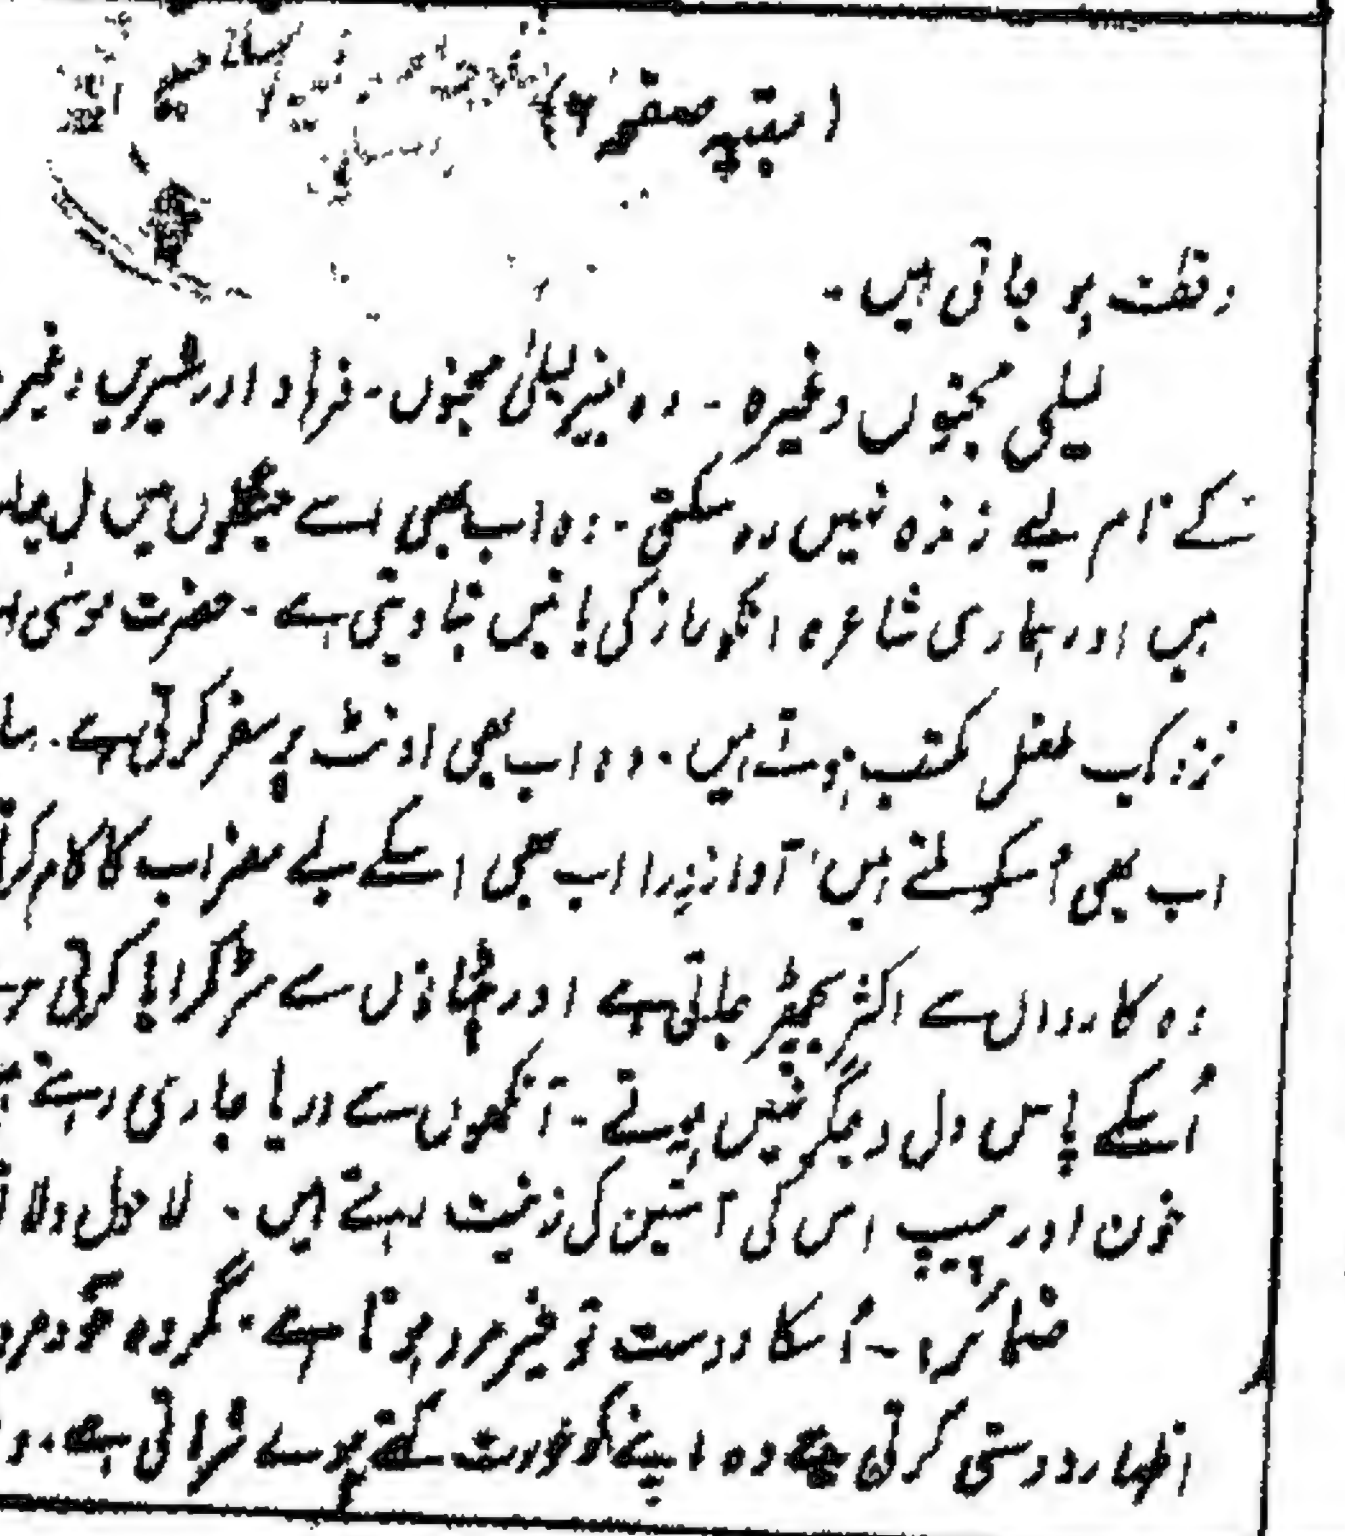 (بقیہ صفحہ ۶)
وقعت ہو جاتی ہیں۔
لیلیٰ مجنوں وغیرہ ۔ وہ بغیر لیلیٰ مجنوں۔ فرہاد اور شیریں وغیرہ
کے نام لیے زندہ نہیں رہ سکتی۔ وہ اب بھی اسے جنگلوں میں مل جاتے
ہیں اور ہماری شاعرہ انکو راز کی باتیں بتا دیتی ہے۔ حضرت موسیٰ
نزدیک طفل مکتب ہوتے ہیں۔ وہ اب بھی اونٹ پر سفر کرتی ہے۔
اب بھی اسکو ملتے ہیں آواز درا اب بھی اسکے لیے مضراب کا کام کرتی
وہ کارواں سے اکثر بچھڑ جاتی ہے اور چٹانوں سے سر ٹکرایا کرتی ہے
اُسکے پاس دل و جگر نہیں ہوتے۔ آنکھوں سے دریا جاری رہتے
خون اور پیپ اس کی آستین کی زینت رہتے ہیں۔ لا حول ولا
ضمائر۔ اُسکا دوست تو خیر مرد ہوتا ہے۔ مگر وہ خود مرد
اظہار دوستی کرتی ہے وہ اپنے کو عورت کہتے ہوے شرماتی ہے۔